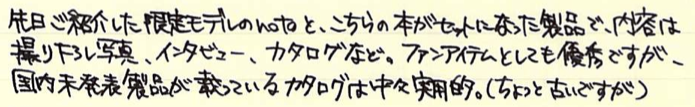 先日ご紹介した限定モデルのnotoと、こちらの本がセットになった製品で、内容は
撮り下ろし写真、インタビュー、カタログなど。ファンアイテムとしても優秀ですが、
国内未発表製品が載っているカタログは中々実用的。(ちょっと古いですが)